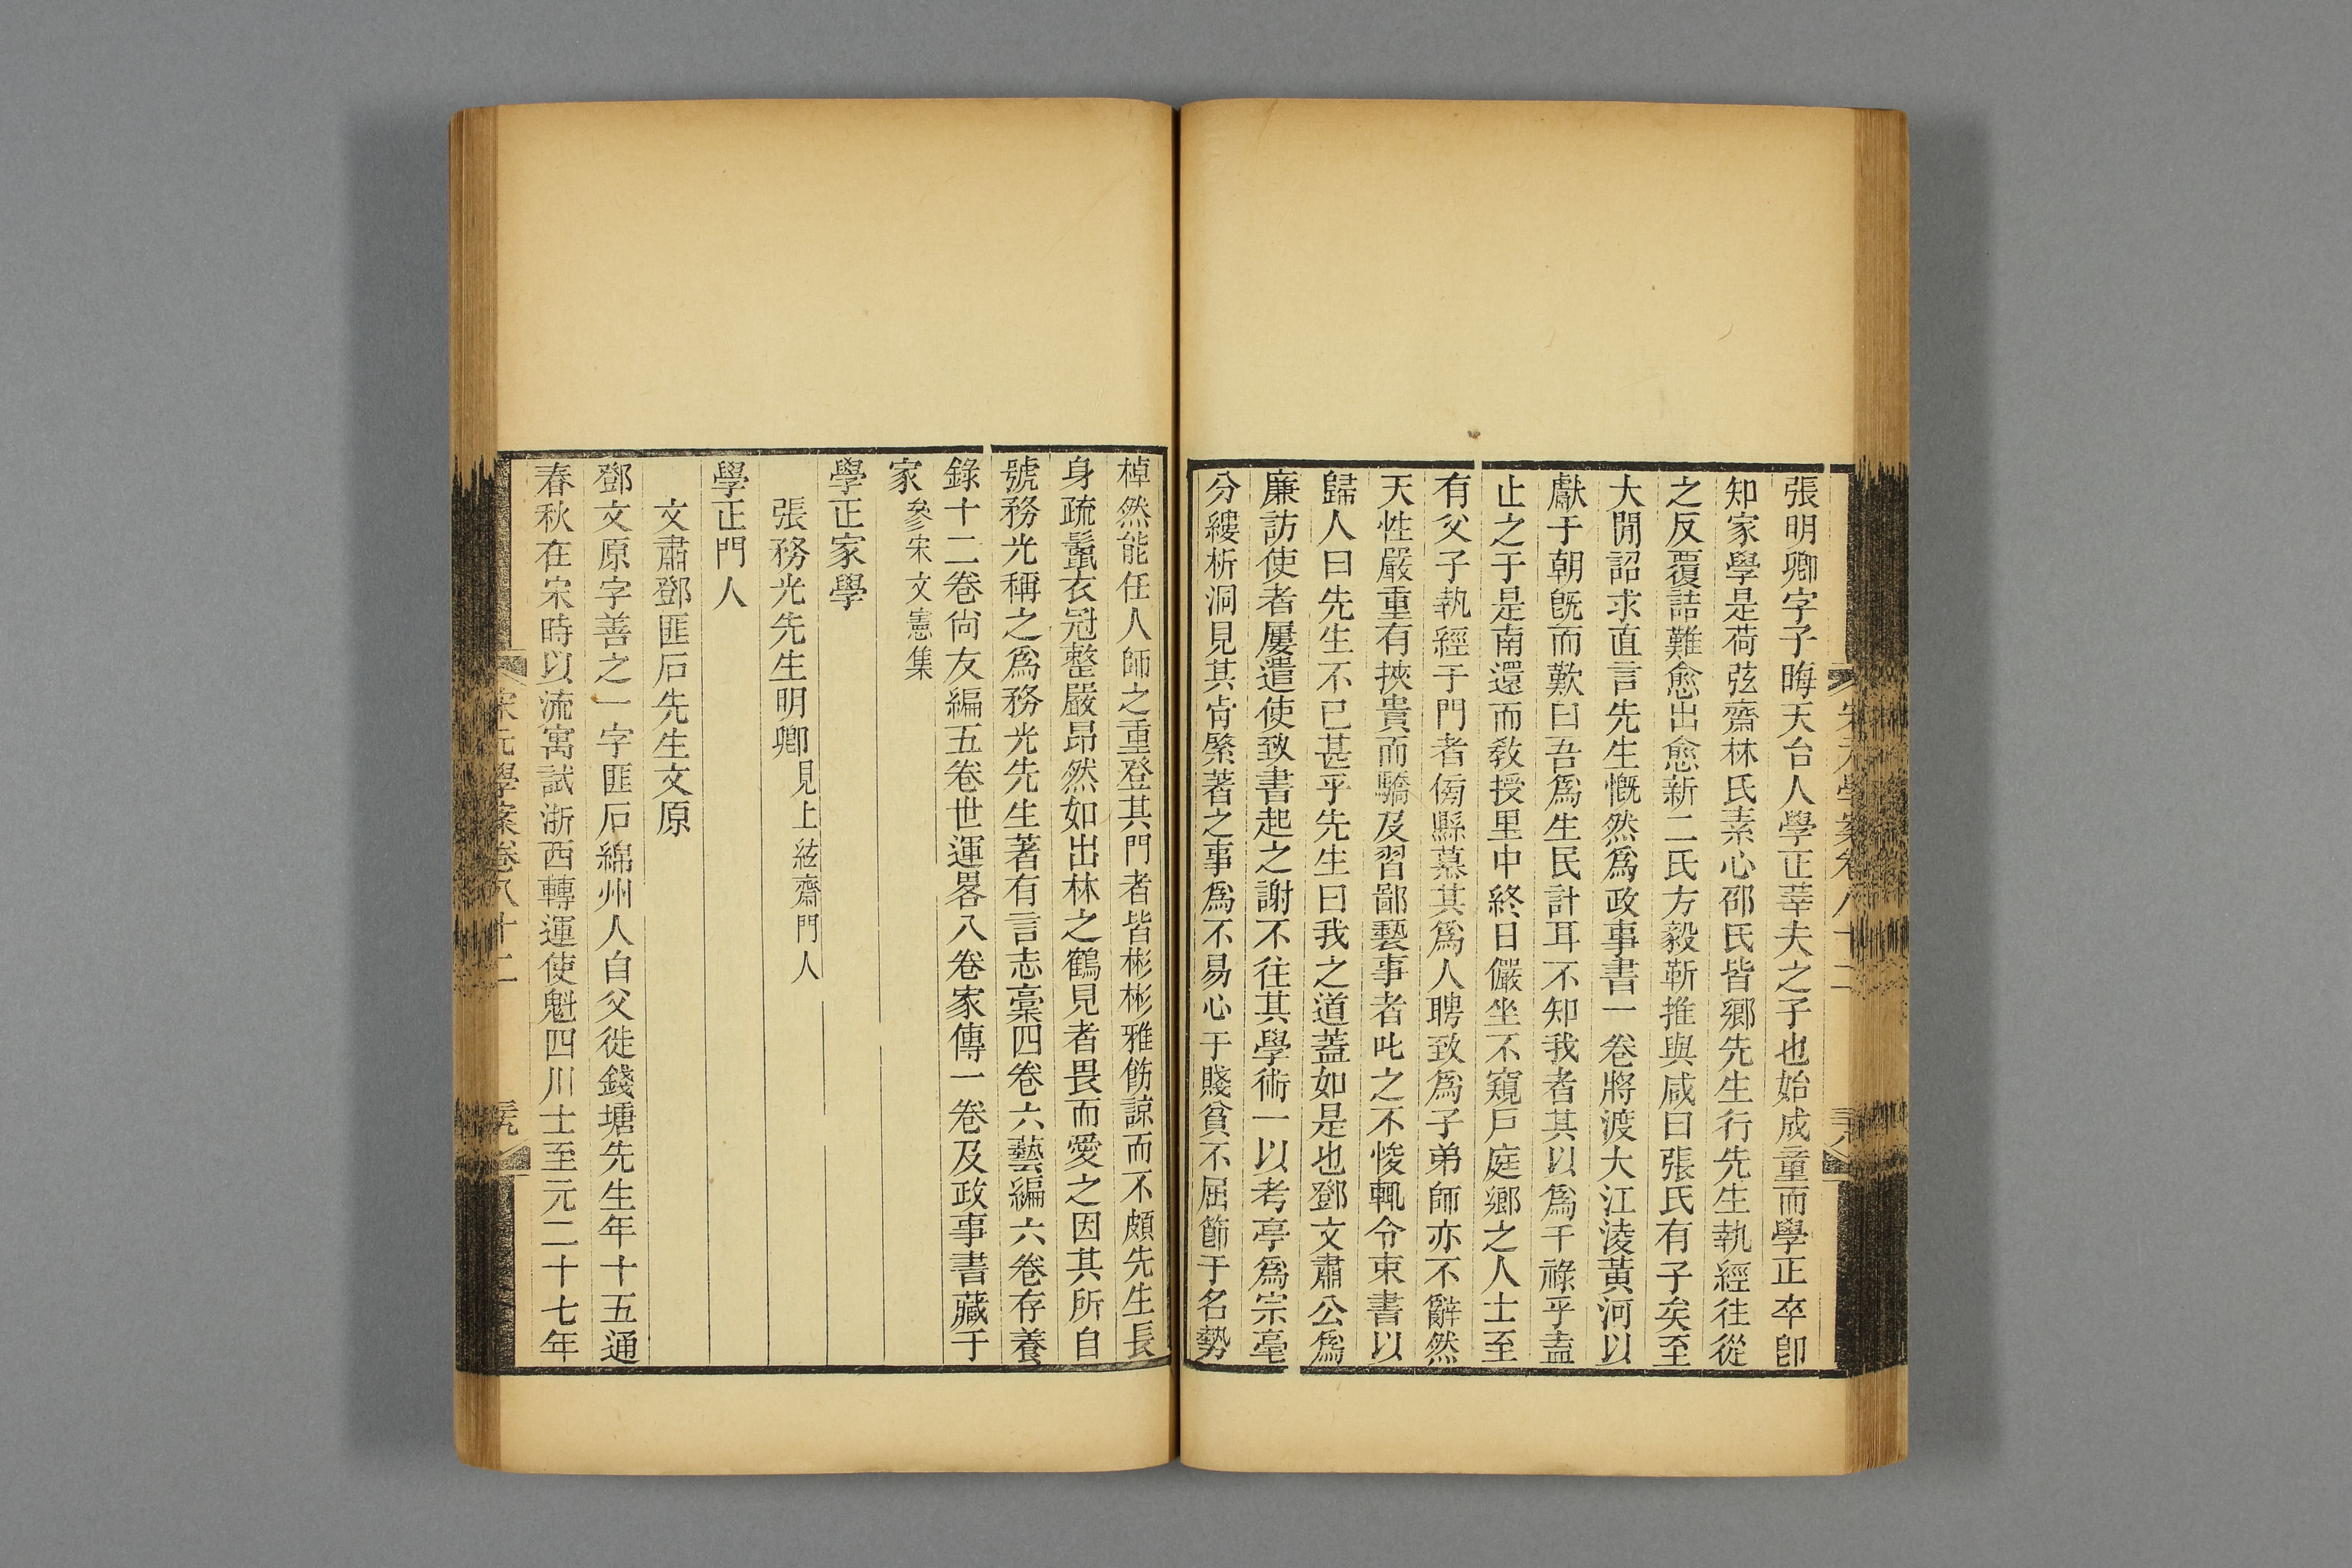 張明卿字子晦天台人學正莘夫之子也始成童而學正卒卽
知家學是荷弦齋林氏素心邵氏皆鄉先生行先生執經往從
之反覆詰難愈出愈新二氏方毅靳推與咸曰張氏有子矣至
大閒詔求直言先生慨然爲政事書一卷將渡大江淩黃河以
獻于朝旣而歎曰吾爲生民計耳不知我者其以爲干祿乎盍
止之于是南還而敎授里中終日儼坐不窺戶庭鄉之人士至
有父子執經于門者傍縣慕其爲人聘致爲子弟師亦不辭然
天性嚴重有挾貴而驕及習鄙褻事者叱之不悛輒令束書以
歸人曰先生不已甚乎先生曰我之道蓋如是也鄧文肅公爲
廉訪使者屢遣使致書起之謝不往其學術一以考亭爲宗毫
分縷析洞見其肯綮著之事爲不易心于賤貧不屈節于名勢
棹然能任人師之重登其門者皆彬彬雅飭諒而不頗先生長
身疏鬣衣冠整嚴昂然如出林之鶴見者畏而愛之因其所自
號務光稱之爲務光先生著有言志藁四卷六藝編六卷存養
錄十二卷尙友編五卷世運畧八卷家傳一卷及政事書藏于
家參宋文憲集
學正家學
張務光先生明卿見上絃齋門人
學正門人
文肅鄧匪石先生文原
鄧文原字善之一字匪石綿州人自父徙錢塘先生年十五通
春秋在宋時以流寓試浙西轉運使魁四川士至元二十七年
宋元學案卷八十二